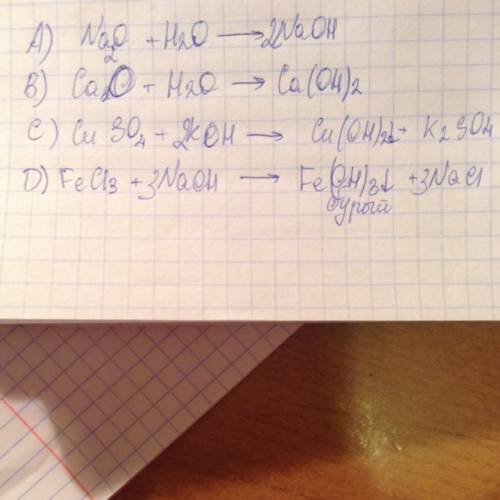 A) Na2O + H2O → 2NaOH
B) Ca2O + H2O → Ca(OH)2
C) Cu SO4 + 2KOH → Cu(OH)2↓ + K2SO4
D) FeCl3 + 3NaOH → Fe(OH)3↓ + 3NaCl
бурый